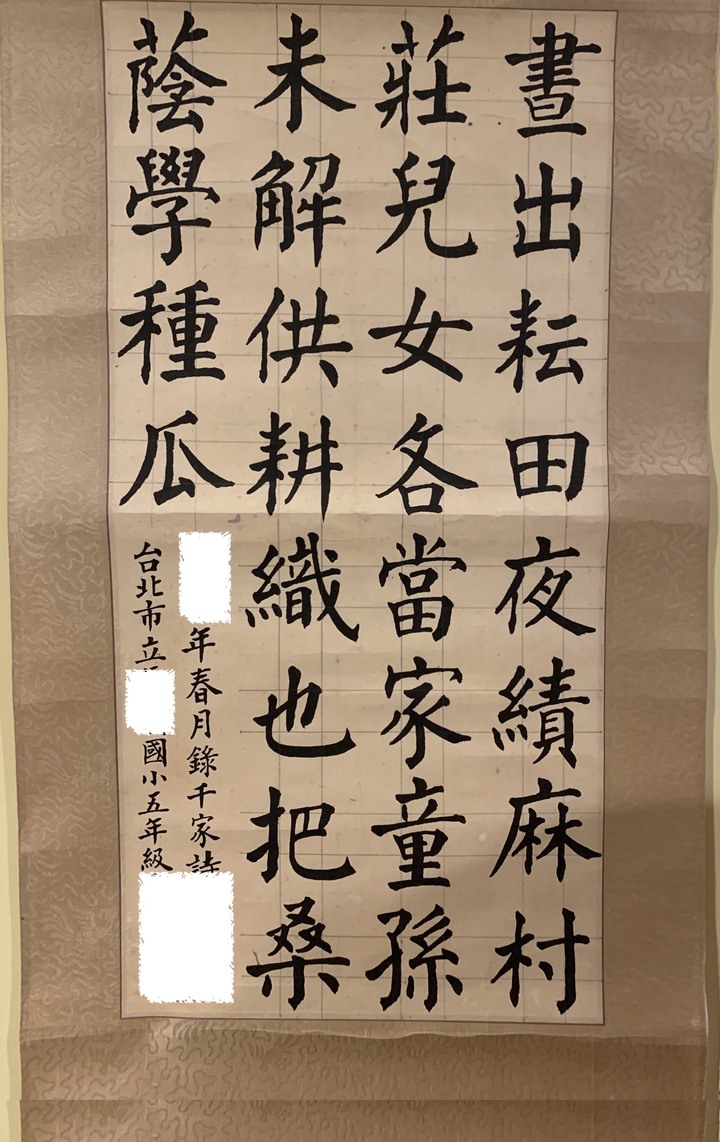 晝出耘田夜績麻村
莊兒女各當家童孫
未解供耕織也把桑
蔭學種瓜
年春月錄千家詩
台北市立國小五年級